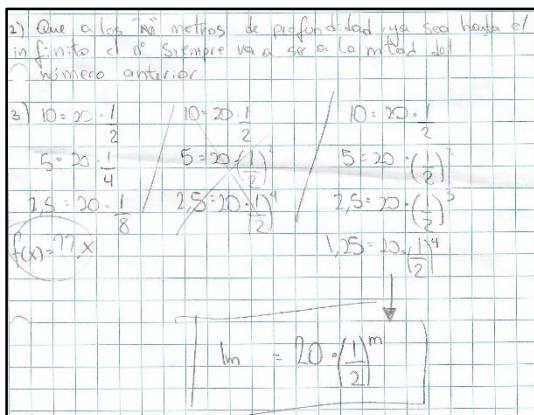 2) Que a los "N" metros de profundidad, ya sea hasta el
infinito el nº siempre va a ser a la mitad del
número anterior
3) 10 = 20 · 1/2
5 = 20 · 1/4
2,5 = 20 · 1/8
f(x) = ??x
10 = 20 · 1/2
5 = 20 · (1/2)²
2,5 = 20 · (1/2)⁴
10 = 20 · 1/2
5 = 20 · (1/2)²
2,5 = 20 · (1/2)³
1,25 = 20 · (1/2)⁴
Im = 20 · (1/2)^m